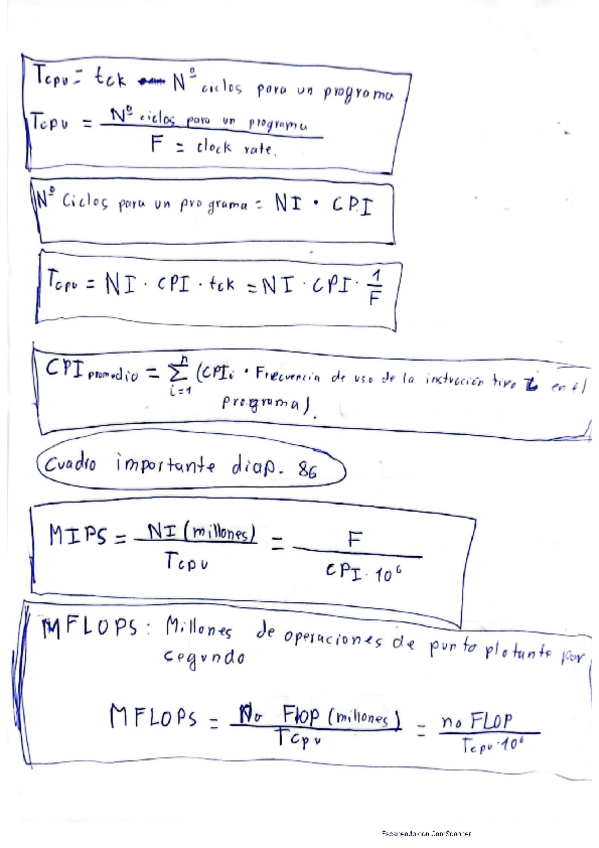 Tcpu = tck · Nº ciclos para un programa
Tcpu = Nº ciclos para un programa / F = clock rate.
Nº Ciclos para un programa = NI · CPI
Tcpu = NI · CPI · tck = NI · CPI · 1/F
CPI promedio = Σ i=1 n (CPIi · Frecuencia de uso de la instrucción tipo i en el
programa).
Cuadro importante diap. 86
MIPS = NI (millones) / Tcpu = F / CPI · 10⁶
MFLOPS: Millones de operaciones de punto flotante por
segundo
MFLOPS = No FlOP (millones) / Tcpu = no FLOP / Tcpu · 10⁶
Escaneado con CamScanner